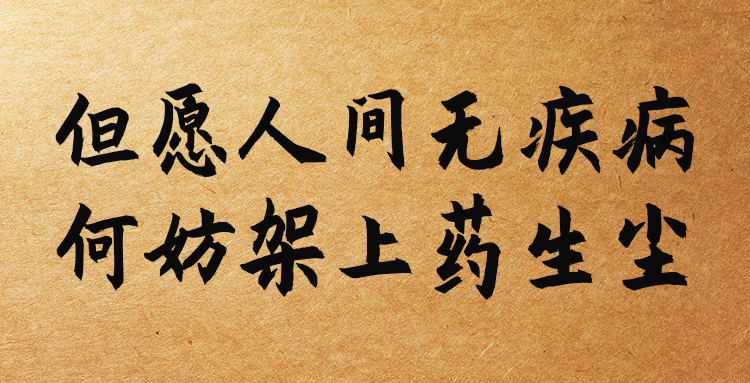 但愿人间无疾病
何妨架上药生尘